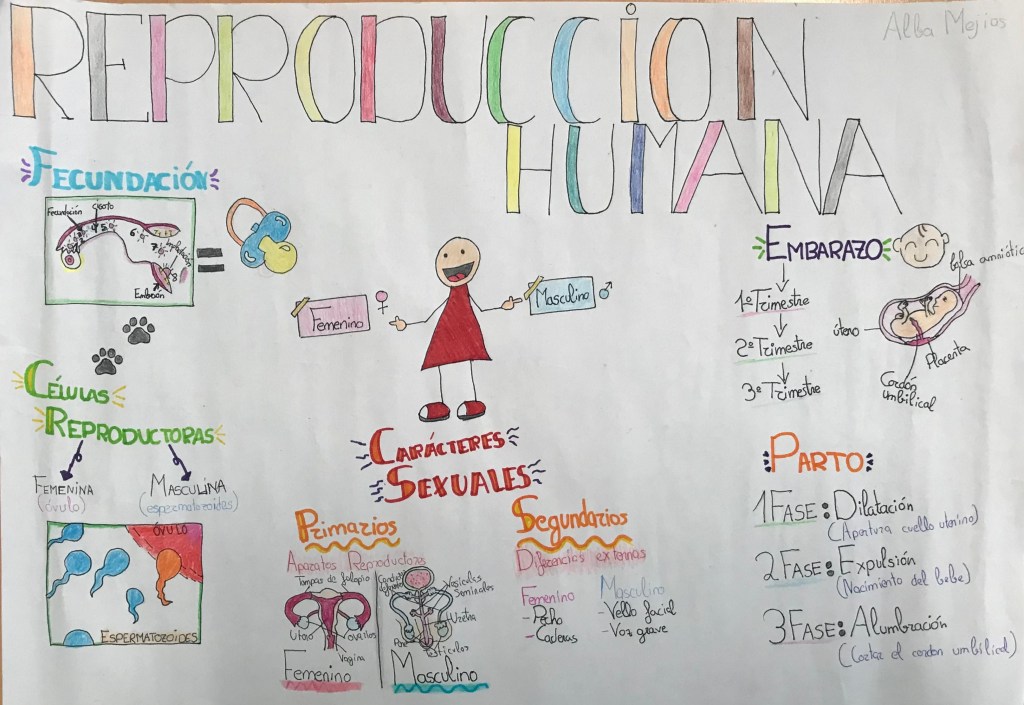 Alba Mejias
REPRODUCCIÓN
HUMANA
FECUNDACIÓN
Fecundición
cigoto
6
7
8
Implantación
Embrión
=
Femenino
Masculino
EMBARAZO
1º Trimestre
2º Trimestre
3º Trimestre
bolsa amniótica
útero
Placenta
Cordón
umbilical
CÉLULAS
REPRODUCTORAS
FEMENINA
(óvulo)
MASCULINA
(espermatozoides)
ÓVULO
ESPERMATOZOIDES
CARÁCTERES
SEXUALES
Primarios
Aparatos Reproductores
Trompas de falopio
Utero
ovarios
Vagina
Femenino
Conducto
deferente
Vesículas
Seminales
Uretra
Pene
Testículos
Masculino
Segundarios
Diferencias externas
Femenino
- Pecho
- Caderas
Masculino
- Vello facial
- Voz grave
PARTO
1 FASE: Dilatación
(Apertura cuello uterino)
2 FASE: Expulsión
(Nacimiento del bebe)
3 FASE: Alumbración
(Cortar el cordon umbilical)